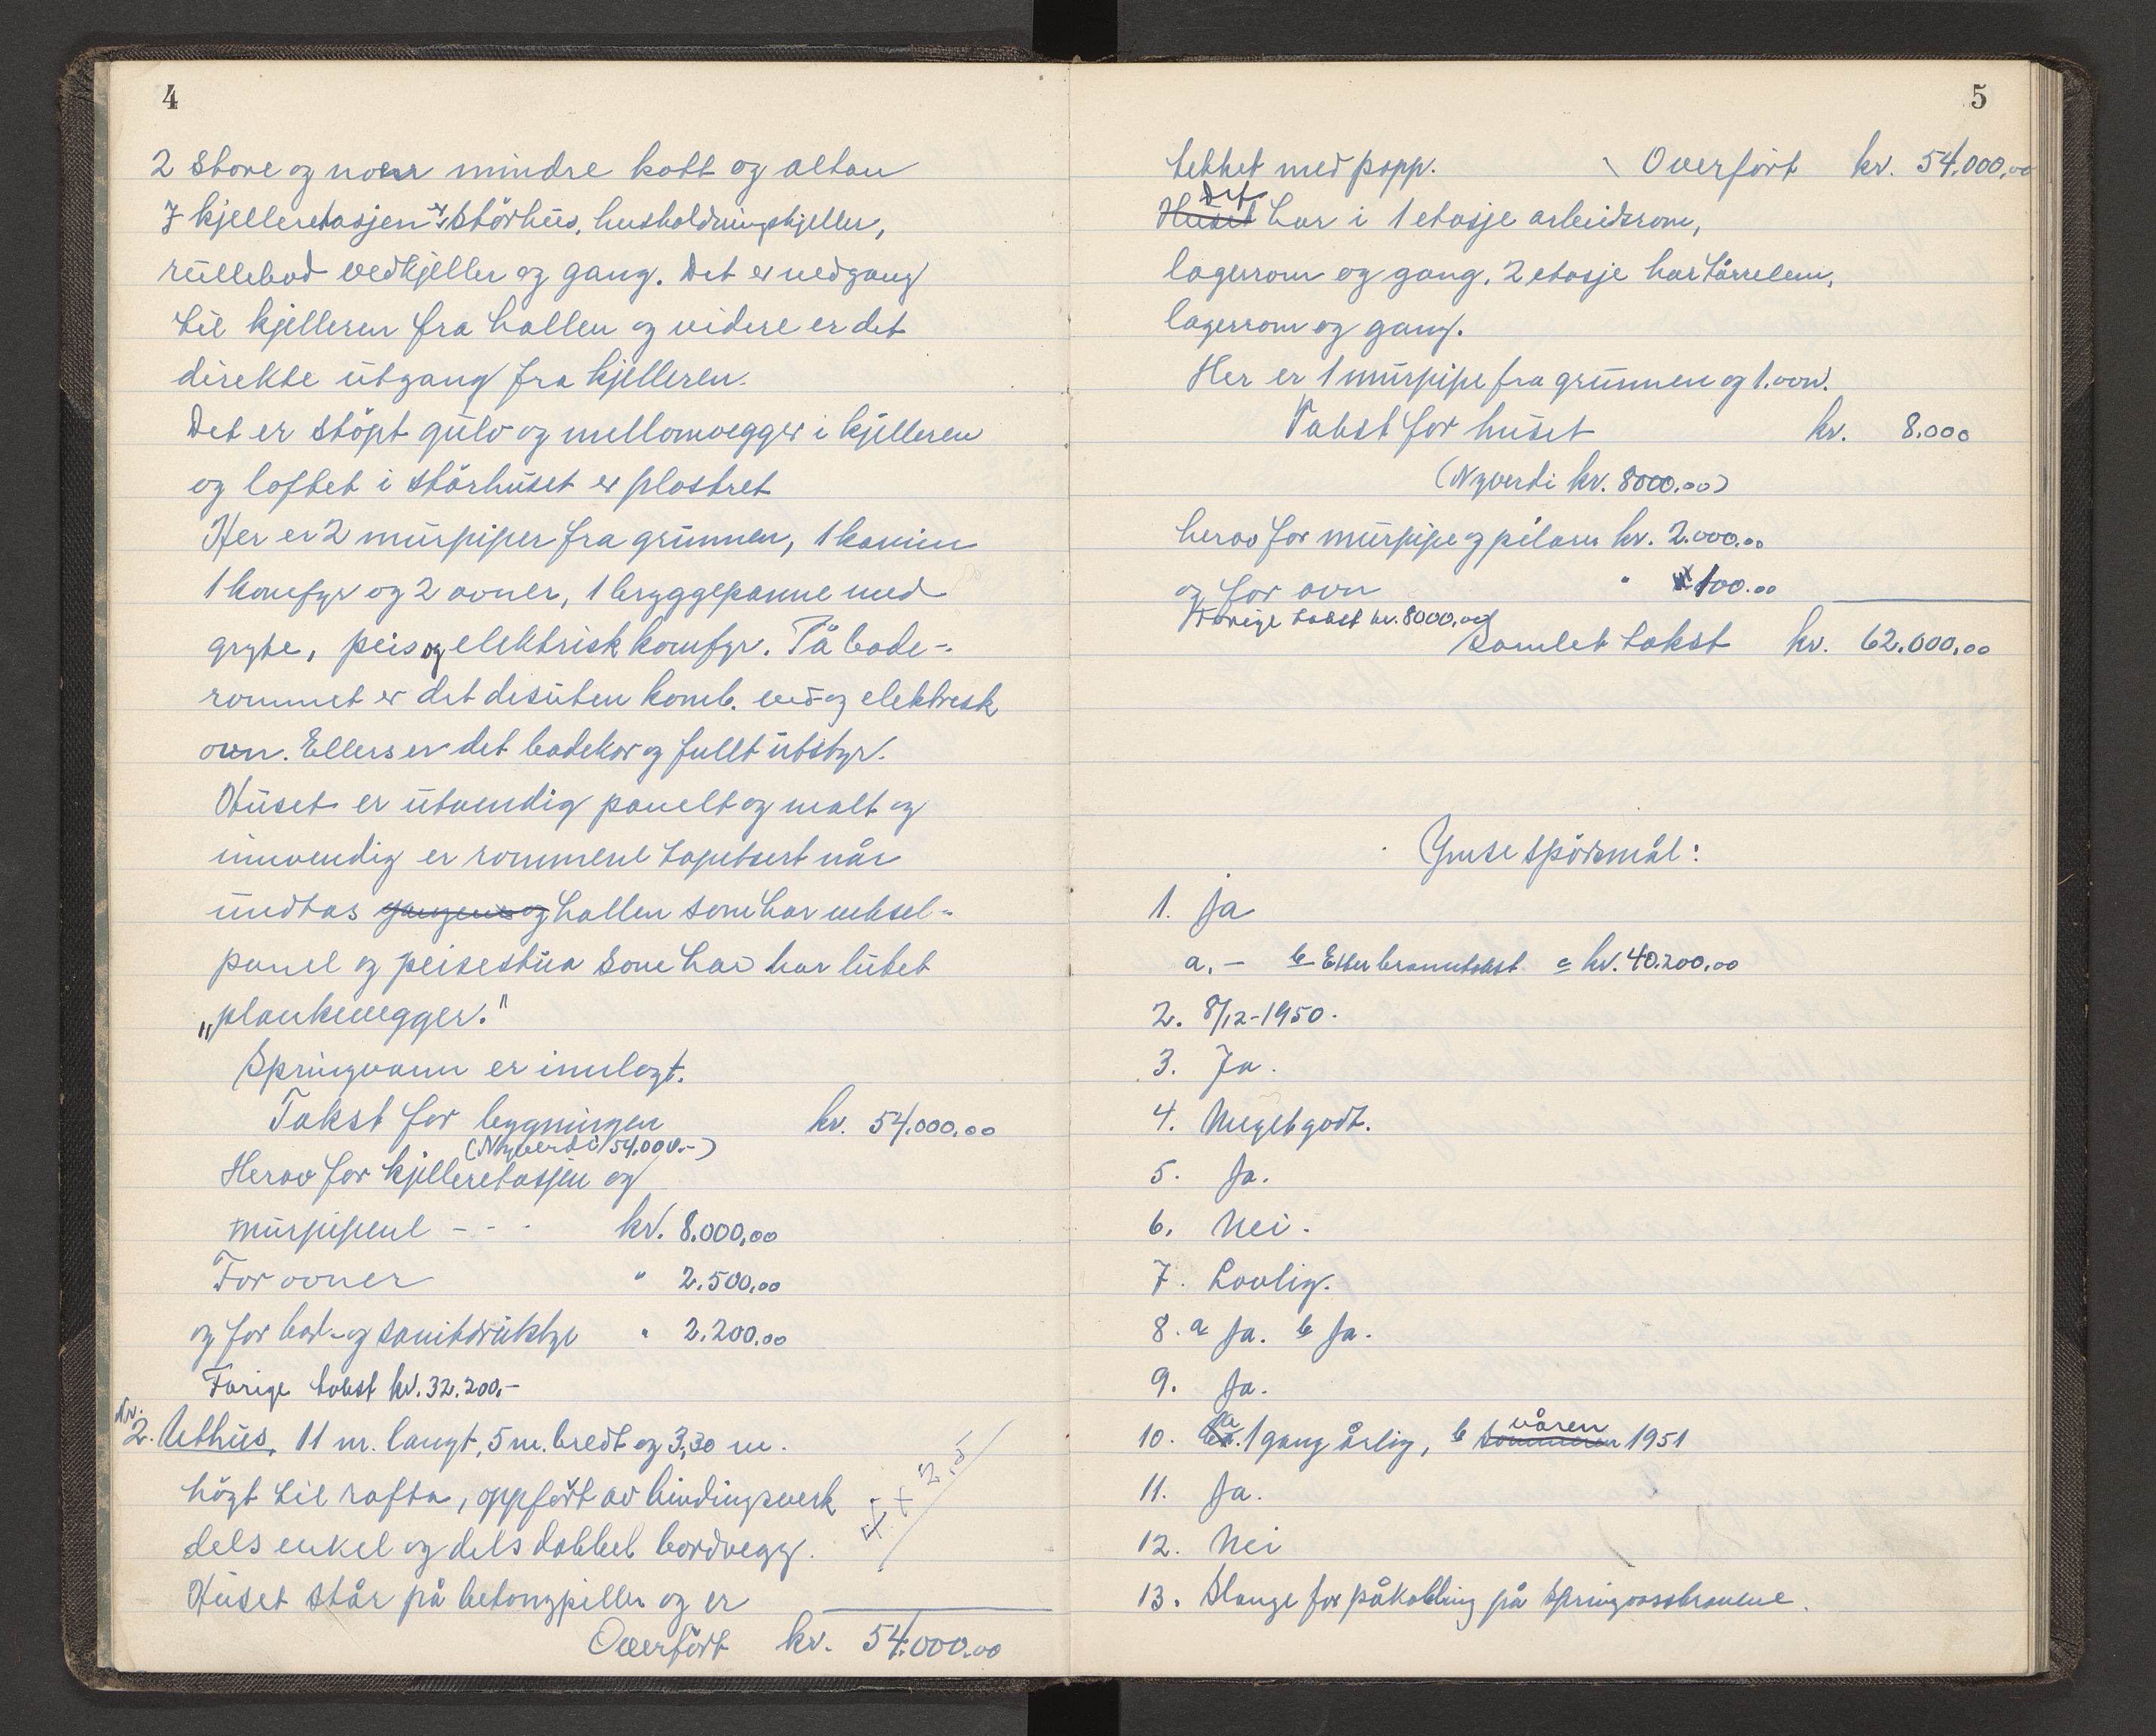 4
2 store og noen mindre kott og altan
I kjelleretasjen er störhus, husholdningskjeller,
rullebod vedkjeller og gang. Det er nedgang
til kjelleren fra hallen og videre er det
direkte utgang fra kjelleren.
Det er støpt gulv og mellomvegger i kjelleren
og loftet i störhuset er plastret
Her er 2 murpiper fra grunnen, 1 kamin
1 komfyr og 2 ovner, 1 bryggepanne med
gryte, peis og elektrisk komfyr. På bade-
rommet er det desuten komb. ved-og elektrisk
ovn. Ellers er det badekar og fullt utstyr.
Huset er utvendig panelt og malt og
innvendig er rommene tapetsert når
undtas gangene og hallen som har veksel-
panel og peisestua som har har lutet
„plankevegger."
Springvann er innlagt.
Takst for bygningen kr. 54.000,00
(Nyverdi 54.000.-)
Herav for kjelleretasjen og
murpipene - - - kr. 8.000,00
For ovner " 2.500,00
og for bad- og sanitærutstyr " 2.200.00
Forige takst kr. 32.200,-
Nr.
2. Uthus, 11 m. langt, 5 m. bredt og 3,30 m.
högt til rafta, oppført av bindingsverk
dels enkel og dels dobbel bordvegg.
Huset står på betongpiller og er
Overfört kr. 54.000.00
5
tekket med papp. Overfört kr. 54.000,00
Det
Huset har i 1 etasje arbeidsrom,
lagerrom og gang. 2 etasje har tørrelem,
lagerrom og gang.
Her er 1 murpipe fra grunnen og 1. ovn.
Takst for huset kr. 8.000
(Nyverdi kr. 8000.00)
herav for murpipe og pilarer kr. 2.000.00
og for ovn " 100.00
Forige takst kr. 8000,00
Samlet takst kr. 62.000,00
Ymse spörsmål:
1. Ja
a. - b Etter branntakst c kr. 40.200,00
2. 8/12-1950.
3. Ja.
4. Meget godt.
5. Ja.
6. Nei.
7. Lovlig.
8. a Ja. b Ja.
9. Ja.
våren
10. a. 1 gang årlig, b sommeren 1951
11. Ja.
12. Nei
13. Slange for påkobling på springvasskranene.